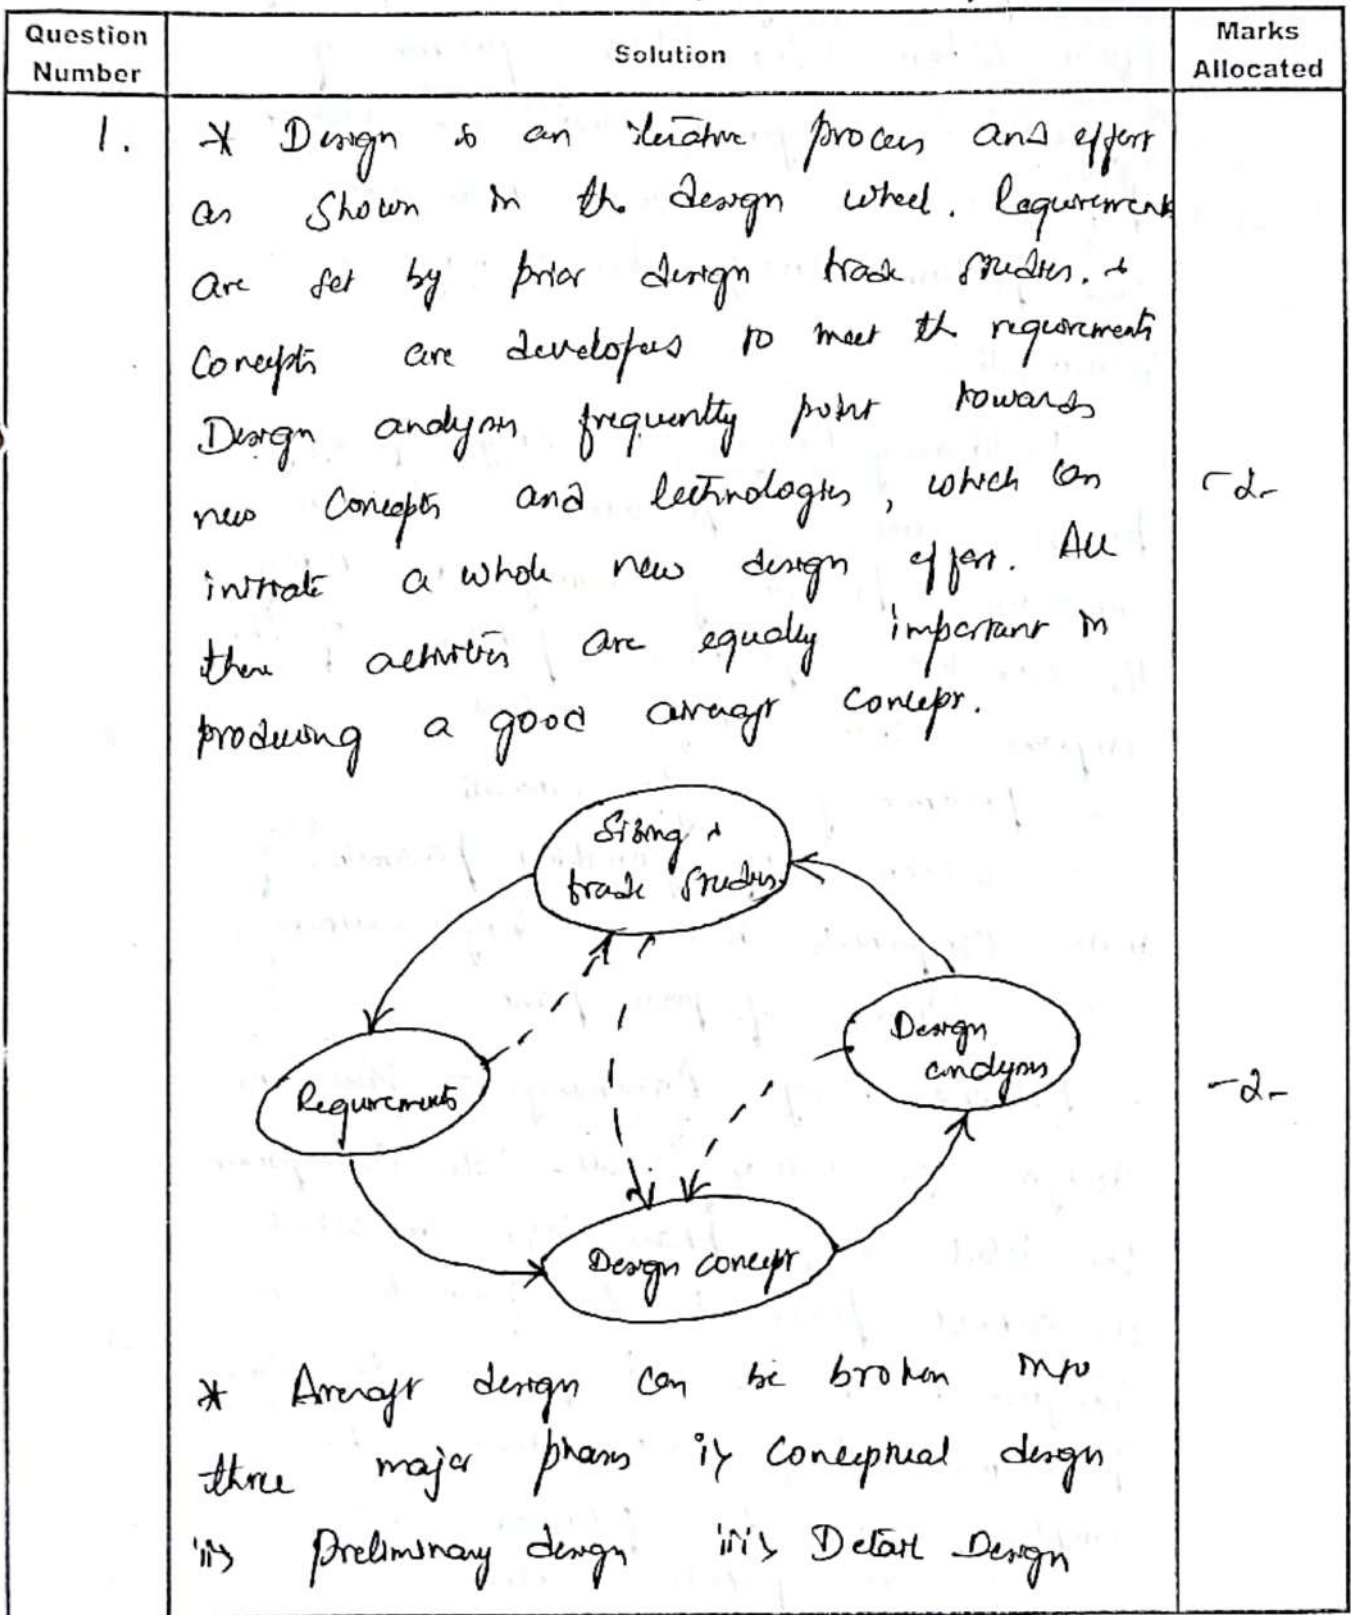 Question Number
Solution
Marks Allocated
1.
* Design is an iterative process and effort
as shown in the design wheel. Requirements
are set by prior design trade studies. &
Concepts are developed to meet the requirements
Design analysis frequently point towards
new concepts and technologies, which can
initiate a whole new design effort. All
these activities are equally important in
producing a good aircraft concept.
-2-
Sizing &
trade studies
Requirements
Design
analysis
Design concept
-2-
* Aircraft design can be broken into
three major phases i> Conceptual design
ii> Preliminary design iii> Detail Design